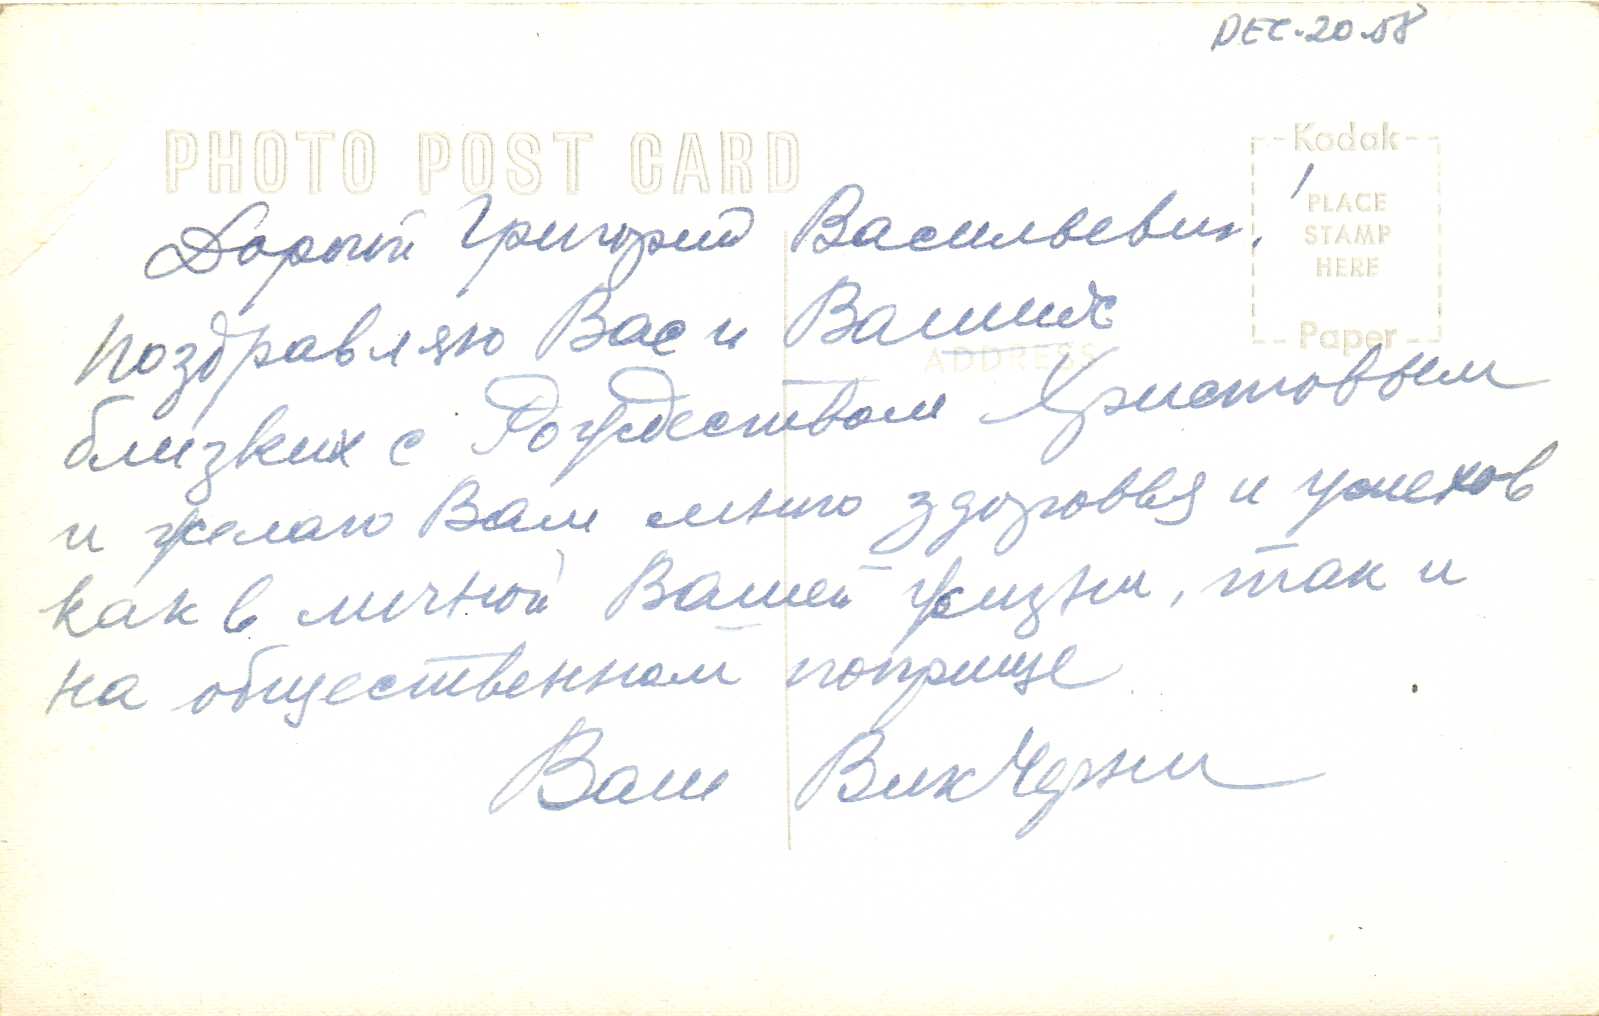 DEC. 20. 58
PHOTO POST CARD
Kodak
PLACE
STAMP
HERE
Paper
ADDRESS
Дорогой Григорий Васильевич!
Поздравляю Вас и Ваших
близких с Рождеством Христовым
и желаю Вам много здоровья и успехов
как в личной Вашей жизни, так и
на общественном поприще
Ваш Вик